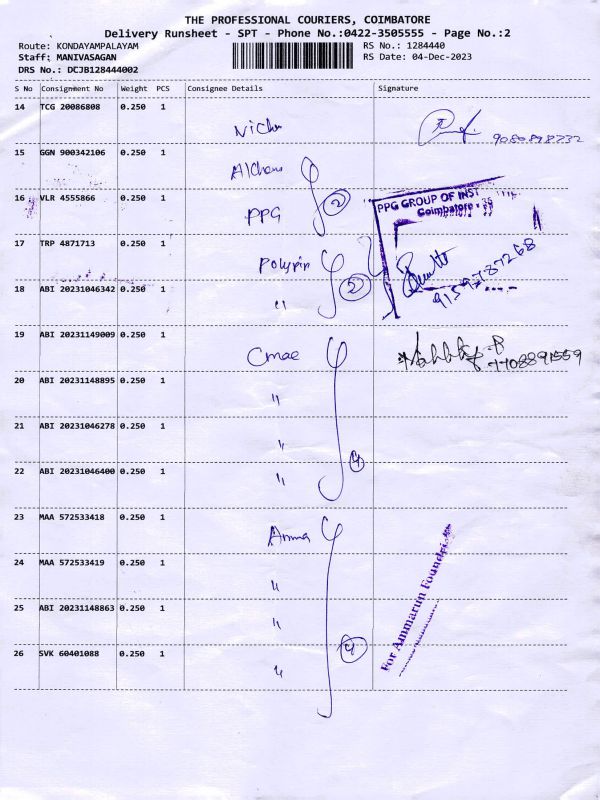 THE PROFESSIONAL COURIERS, COIMBATORE
Delivery Runsheet - SPT - Phone No.:0422-3505555 - Page No.:2
Route: KONDAYAMPALAYAM
RS No.: 1284440
Staff: MANIVASAGAN
RS Date: 04-Dec-2023
DRS No.: DCJB128444002
S No Consignment No Weight PCS Consignee Details Signature
14 TCG 20086808 0.250 1
9080898732
15 GGN 900342106 0.250 1
16 VLR 4555866 0.250 1 PPG 2
PPG GROUP OF INST
Coimbatore - 35
17 TRP 4871713 0.250 1
9159787268
18 ABI 20231046342 0.250 1 " 2
19 ABI 20231149009 0.250 1 Cmae
7708891559
20 ABI 20231148895 0.250 1 "
21 ABI 20231046278 0.250 1 "
22 ABI 20231046400 0.250 1 " 4
23 MAA 572533418 0.250 1
24 MAA 572533419 0.250 1 "
25 ABI 20231148863 0.250 1 "
26 SVK 60401088 0.250 1 " 4
For Ammarun Foundries